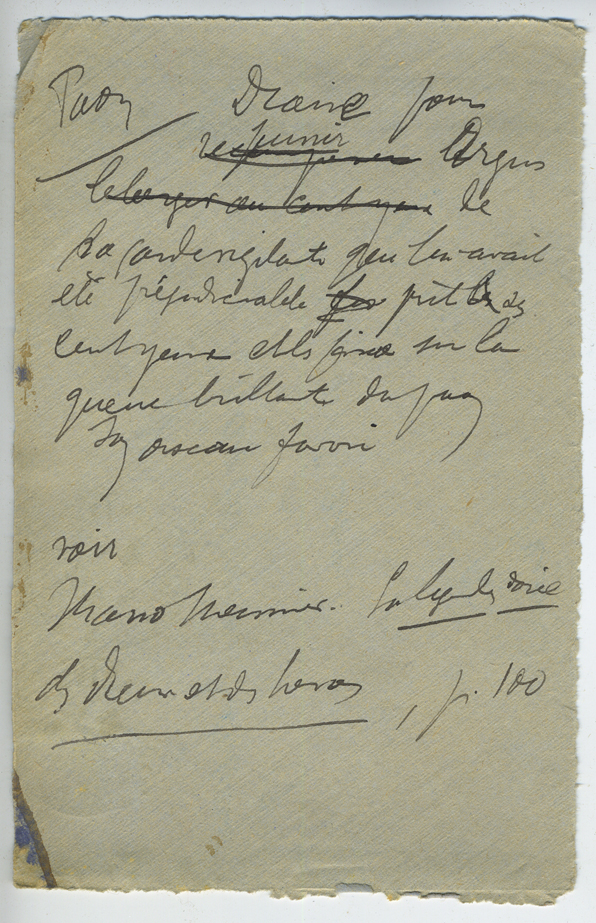 Paon Diane pour
punir
récompenser Argus
le berger aux cent yeux de
sa vigilante qui lui avait
été préjudiciable prit les
cent yeux et les fixa sur la
queue brillante du paon
son oiseau favori
voir
Mario Meunier. La légende dorée
des Dieux et des héros, p. 100